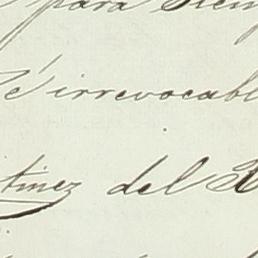 para siem
é irrevocabl
tinez del R